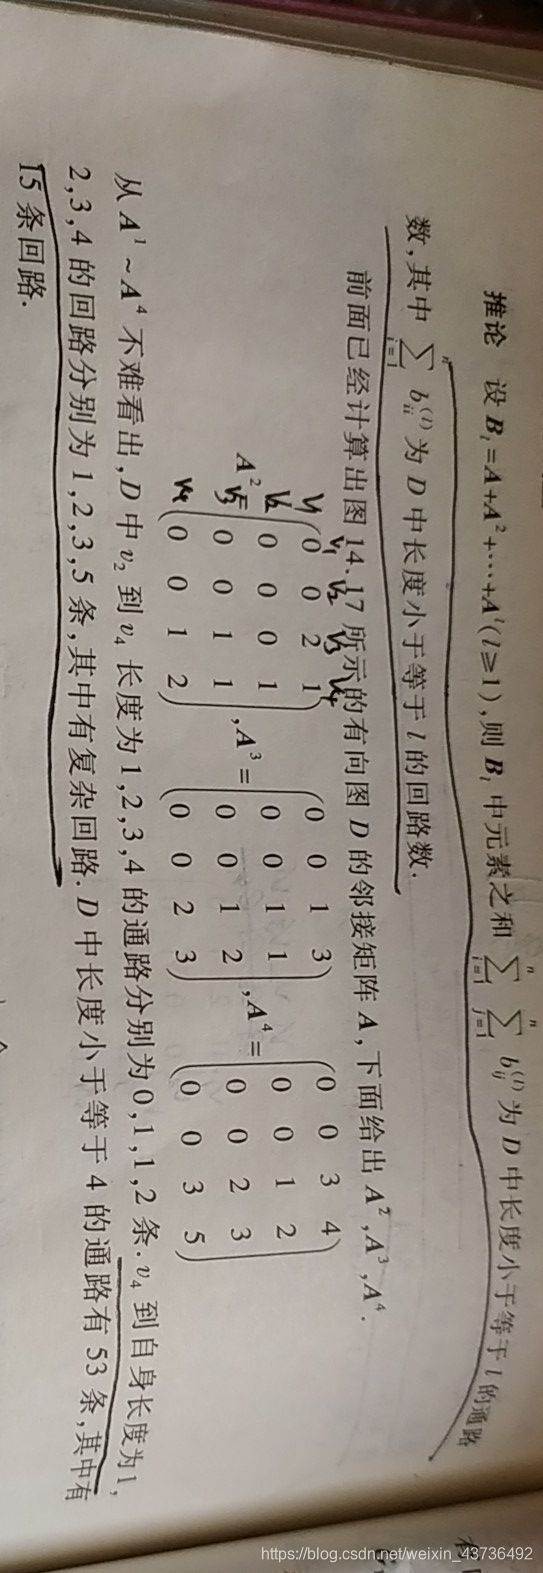 推论 设 B_l=A+A²+⋯+A^l(l≥1),则 B_l 中元素之和 ∑_{i=1}^{n} ∑_{j=1}^{n} b_{ij}^{(l)} 为 D 中长度小于等于 l 的通路
数,其中 ∑_{i=1}^{n} b_{ii}^{(l)} 为 D 中长度小于等于 l 的回路数.
前面已经计算出图 14.17 所示的有向图 D 的邻接矩阵 A,下面给出 A²,A³,A⁴.
V₁ V₂ V₃ V₄
V₁ 0 0 2 1 0 0 1 3 0 0 3 4
V₂ 0 0 0 1 0 0 1 1 0 0 1 2
A²= ,A³= ,A⁴=
V₃ 0 0 1 1 0 0 1 2 0 0 2 3
V₄ 0 0 1 2 0 0 2 3 0 0 3 5
从 A¹~A⁴ 不难看出,D 中 v₂ 到 v₄ 长度为 1,2,3,4 的通路分别为 0,1,1,2 条. v₄ 到自身长度为 1,
2,3,4 的回路分别为 1,2,3,5 条,其中有复杂回路. D 中长度小于等于 4 的通路有 53 条,其中有
15 条回路.
https://blog.csdn.net/weixin_43736492